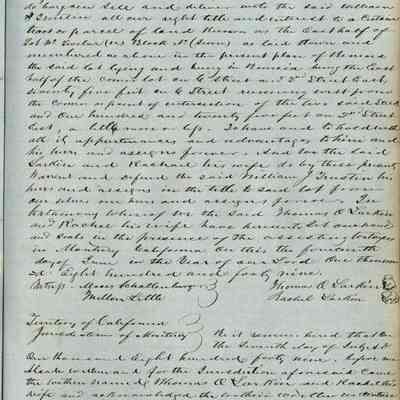 do bargain Sell and deliver unto the said William
J Trustin all our right title and interest to a certain
tract or parcel of land Known as the East half of
Lot No Twelve (12) Block No (Seven) as laid down and
numbered as above in the present plan of Benicia
the said lot lying and being in Benicia being the East
half of the corner lot on G Street and 2nd Street East
Seventy five feet on G Street running east from
the corner or point of intersection of the two said Streets
and One hundred and twenty five feet on 2nd Street
East, a little more or less. To have and to hold with
all its appurtenances and advantages to him and
his heirs and assigns forever. And we the said
Larkin and Rachael his wife do by these presents
Warrant and defend the said William J Trustin his
heirs and assigns in the title to said lot from
our selves our heirs and assigns forever. In
testimony whereof we the said Thomas O Larkin
and Rachel his wife have hereunto Set our hands
and seals in the presence of the assisting witnesses
in Monterey California this the fourteenth
day of June in the Year of our Lord One thousand
Eight hundred and forty nine.
Witness Moses Schallenberger Thomas O Larkin
Milton Little Rachel Larkin
Territory of California
Jurisdiction of Monterey
Be it remembered that on
the Seventh day of July A.D.
One thousand Eight hundred forty nine before me
Alcalde in and for the Jurisdiction aforesaid Came
the within named Thomas O Larkin and Rachel his
wife and acknowledged the within